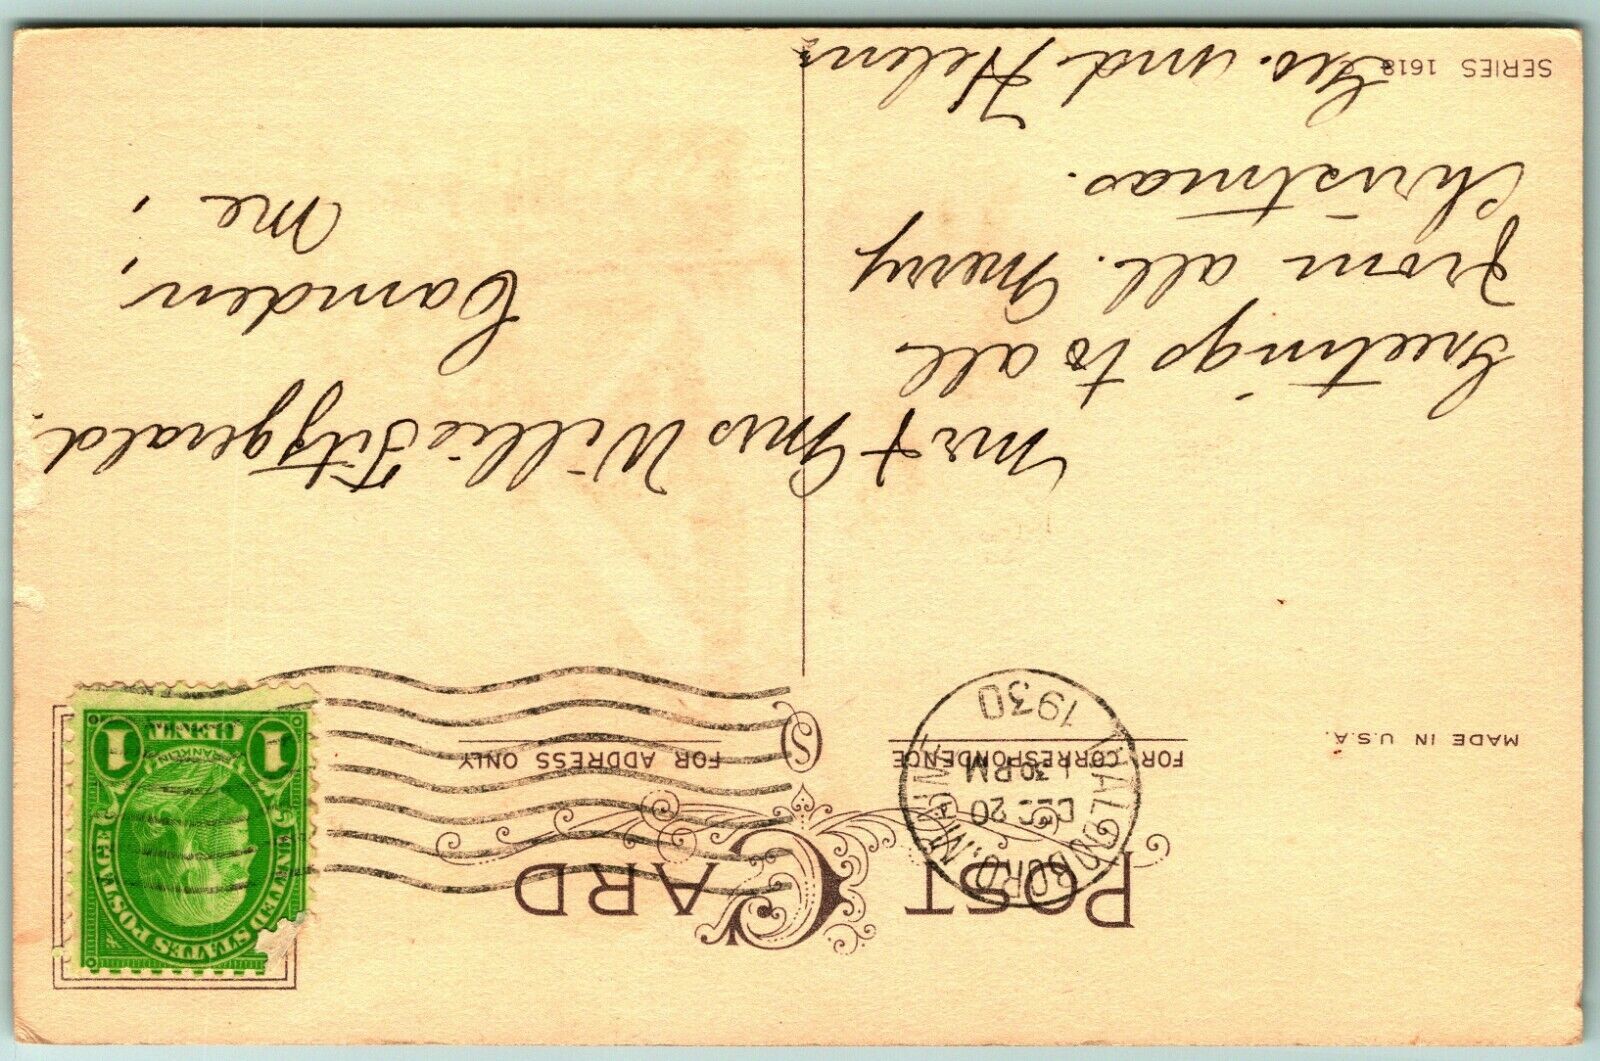 POST CARD
MADE IN U.S.A.
FOR CORRESPONDENCE
FOR ADDRESS ONLY
WALDOBORO, MAINE
DEC 20
1 30 PM
1930
UNITED STATES POSTAGE
FRANKLIN
1 CENT 1
Greetings to all
from all. Merry
Christmas.
Geo. and Helen
SERIES 1618
Mr + Mrs Willis Fitzgerald.
Camden,
Me,